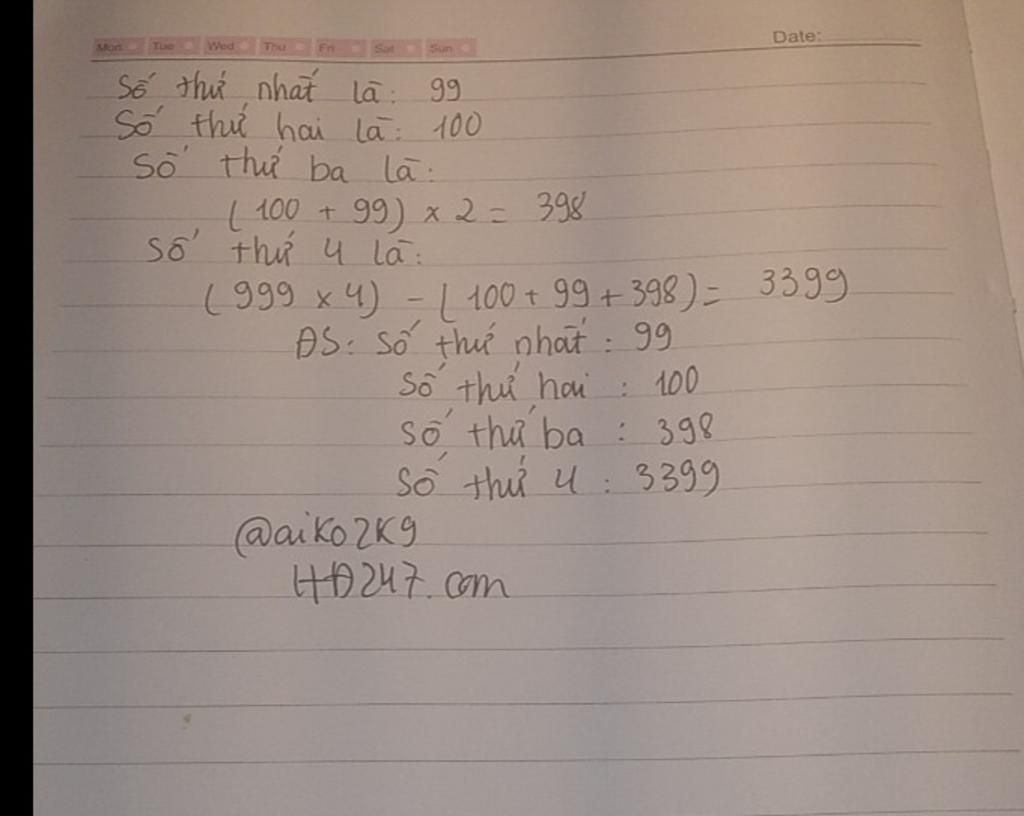 Mon Tue Wed Thu Fri Sat Sun Date:
Số thứ nhất là: 99
Số thứ hai là: 100
Số thứ ba là:
(100 + 99) x 2 = 398
Số thứ 4 là:
(999 x 4) - (100 + 99 + 398) = 3399
ĐS: Số thứ nhất: 99
Số thứ hai: 100
Số thứ ba: 398
Số thứ 4: 3399
@aiko2k9
HĐ247.com